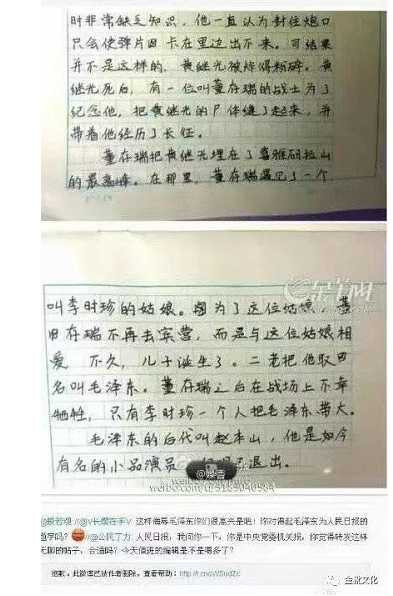 时非常缺乏知识，他一直认为封住炮口
只会使弹片旧卡在里边出不来。可结果
并不是这样的，黄继光被炸得粉碎。黄
继光死后，有一位叫董存瑞的战士为了
纪念他，把黄继光的尸体缝了起来，并
带着他经历了长征。
董存瑞把黄继光埋在了喜雅玛拉山
的最高峰。在那里，董存瑞遇见了一个
叫李时珍的姑娘。因为了这位姑娘，董
存瑞不再去兵营，而是与这位姑娘相
爱。不久，儿子诞生了。二老把他取
名叫毛泽东。董存瑞之后在战场上不幸
牺牲，只有李时珍一个人把毛泽东带大。
毛泽东的后代叫赵本山，他是如今
有名的小品演员
退出。
这样侮辱毛泽东你们很高兴是吧！你对得起毛泽东为人民日报的
题字吗？
@公民了力 人民日报，我问你一下，你是中央党委机关报，你觉得转发这样
无聊的帖子，合适吗？今天值班的编辑是不是喝多了？
抱歉，此微博已被作者删除。查看帮助：
金数文化